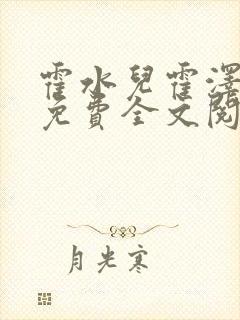 霍水兒霍澤
免費全文閱
月光寒